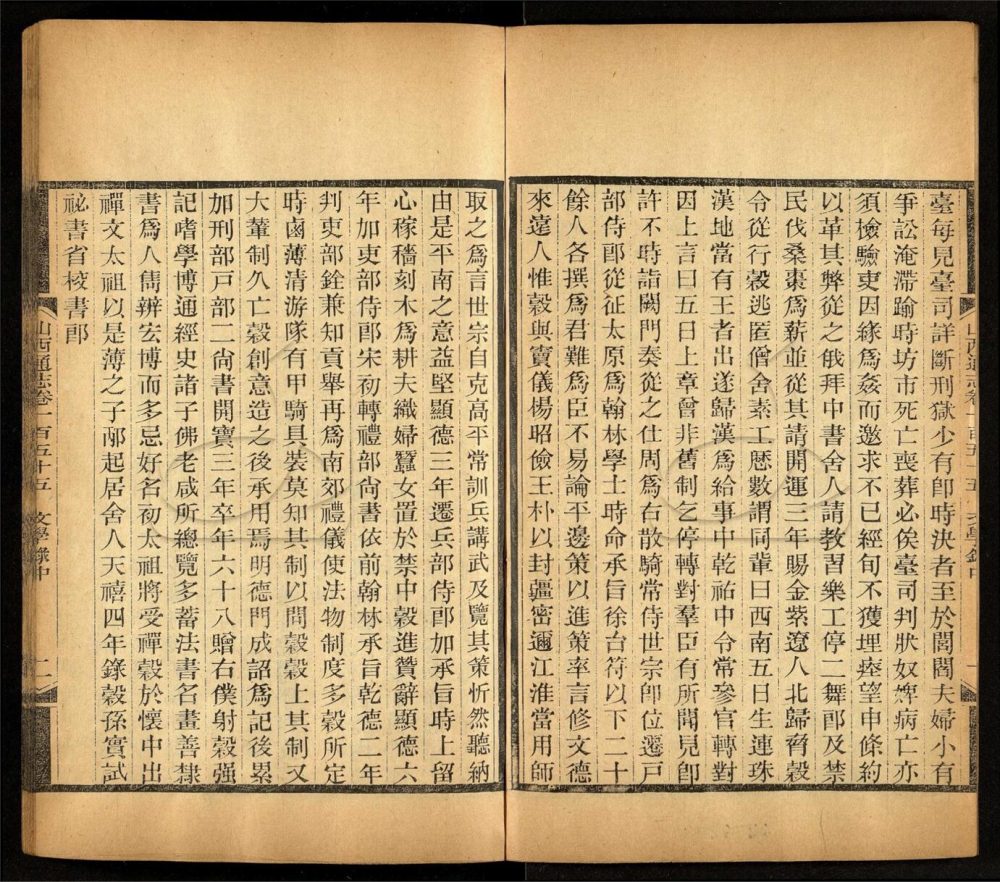 臺每見臺司詳斷刑獄少有卽時決者至於閭閻夫婦小有
爭訟淹滯踰時坊市死亡喪葬必俟臺司判狀奴婢病亡亦
須撿驗吏因緣爲姦而邀求不已經旬不獲埋瘞望申條約
以革其弊從之俄拜中書舍人請敎習樂工停二舞郞及禁
民伐桑棗爲薪並從其請開運三年賜金紫遼人北歸脅穀
令從行穀逃匿僧舍素工厯數謂同輩曰西南五日生連珠
漢地當有王者出遂歸漢爲給事中乾祐中令常參官轉對
因上言曰五日上章曾非舊制乞停轉對羣臣有所聞見卽
許不時詣闕門奏從之仕周爲右散騎常侍世宗卽位遷戸
部侍郞從征太原爲翰林學士時命承旨徐台符以下二十
餘人各撰爲君難爲臣不易論平邊策以進策率言修文德
來遠人惟穀與竇儀楊昭儉王朴以封疆密邇江淮當用師
山西通志卷一百五十五 文學錄中 一
取之爲言世宗自克高平常訓兵講武及覽其策忻然聽納
由是平南之意益堅顯德三年遷兵部侍郞加承旨時上留
心稼穡刻木爲耕夫織婦蠶女置於禁中穀進贊辭顯德六
年加吏部侍郞宋初轉禮部尙書依前翰林承旨乾德二年
判吏部銓兼知貢舉再爲南郊禮儀使法物制度多穀所定
時鹵薄清游隊有甲騎具裝莫知其制以問穀穀上其制又
大輦制久亡穀創意造之後承用焉明德門成詔爲記後累
加刑部戸部二尙書開寶三年卒年六十八贈右僕射穀强
記嗜學博通經史諸子佛老咸所總覽多蓄法書名畫善隸
書爲人雋辨宏博而多忌好名初太祖將受禪穀於懷中出
禪文太祖以是薄之子邴起居舍人天禧四年錄穀孫實試
祕書省校書郞
山西通志卷一百五十五 文學錄中 二